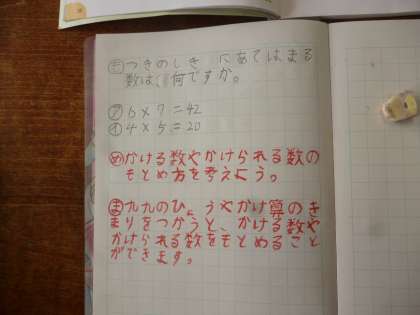 もつきのしき にあてはまる
数は、何ですか。
ア 6×7=42
イ 4×5=20
めかける数やかけられる数の
もとめ方を考えよう。
ま九九のひょうやかけ算のき
まりをつかうと、かける数や
かけられる数をもとめること
ができます。